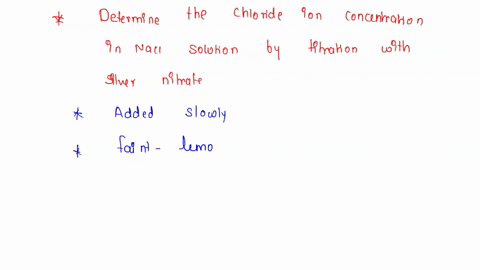 * Determine the Chloride ion concentration
in Nacl solution by titration with
silver nitrate
* Added slowly
* faint- lemo